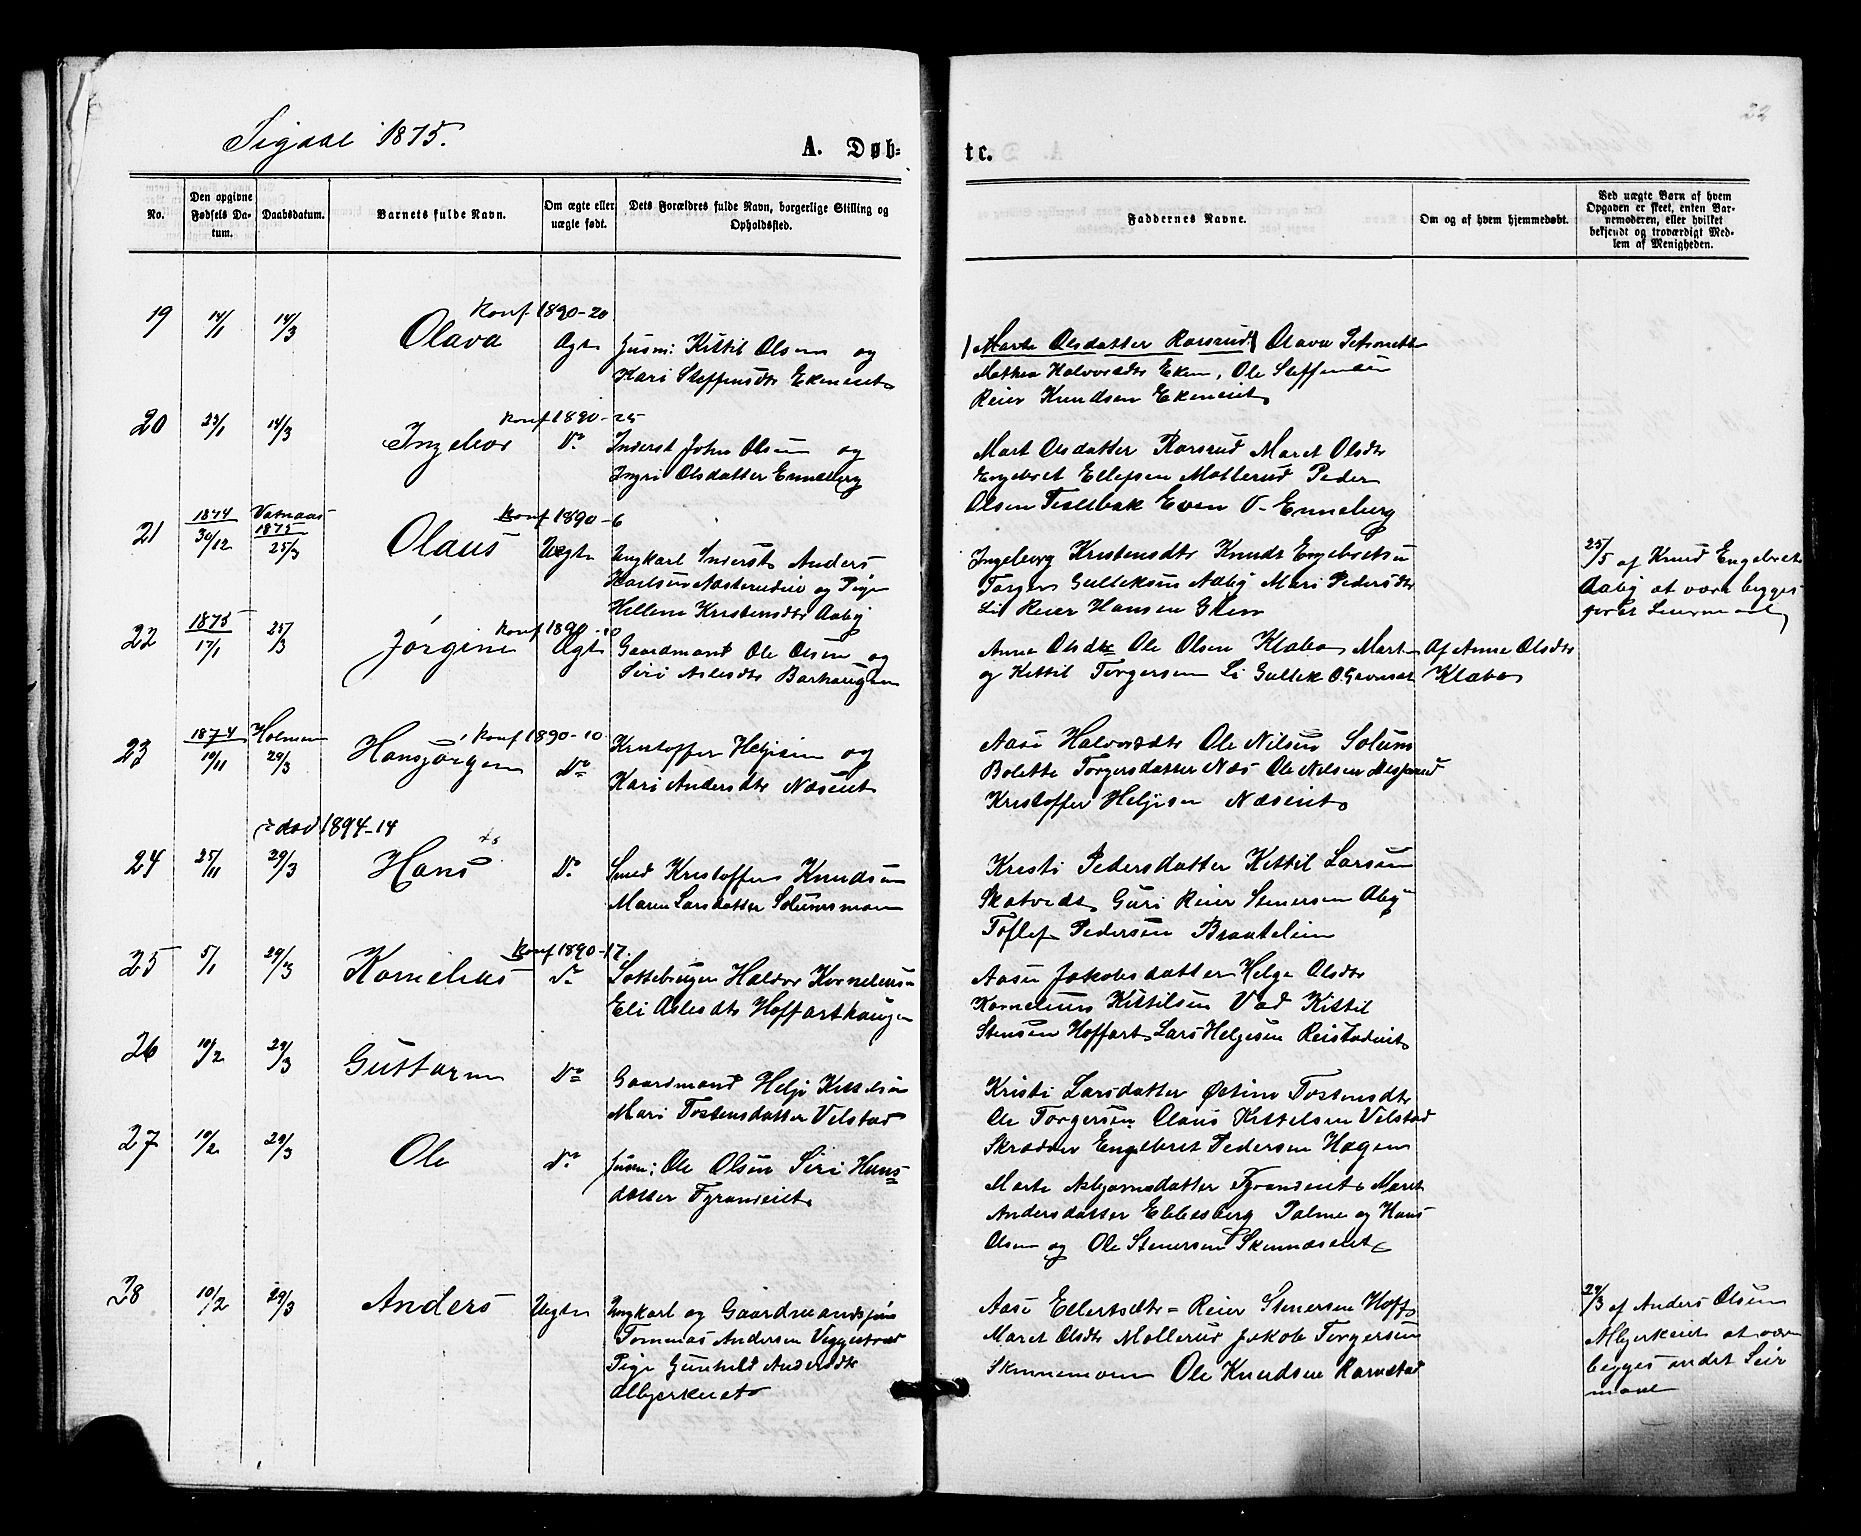 Sigdal 1875.
A. Døb-
te.
22
No.
Den opgivne Fødsels Datum.
Daabsdatum.
Barnets fulde Navn.
Om ægte eller uægte født.
Dets Forældres fulde Navn, borgerlige Stilling og Opholdssted.
Faddernes Navne.
Om og af hvem hjemmedøbt.
Ved uægte Barn af hvem Opgaven er skeet, enten Barnemoderen, eller hvilket bekjendt og troværdigt Medlem af Menigheden.
Konf 1890-20
19 14/1 14/3 Olava Ægte Husm: Kittil Olsen og
Kari Steffensdtr Ekeneiet
Marte Olsdatter Rorsrud Olava Petronette
Mathea Halvorsdtr Eken, Ole Steffensen
Reier Knudsen Ekeneiet
Konf 1890-25
20 23/1 14/3 Ingebor Do Inderst John Olsen og
Ingri Olsdatter Enneberg
Marit Olsdatter Rorsrud Maret Olsdtr
Engebret Ellefsen Mollerud Peder
Olsen Teslebak Even O. Enneberg
Konf 1890-6
21 1874 30/12 Vatnaas 1875 25/3 Olaus Uægte Ungkarl Inderst Anders
Karlsen Næsteneiet og Pige
Hellene Kristensdtr Aaby
Ingeborg Kristensdtr Knudt Engebretsen
Torger Gulleksen Aaby Mari Pedersdtr
Li Reier Hansen Glen
25/5 af Knud Engebrets
Aaby at være begges
første Leiermaal
Konf 1890-10
22 1875 17/1 25/3 Jørgine Ægte Gaardmand Ole Olsen og
Siri Aslesdtr Barhaugen
Anne Olsdtr Ole Olsen Klæbo Marte
og Kittil Torgersen Li Gullek O.
Af Anne Olsdtr
Klæbo
Konf 1890-10
23 1874 10/11 Holmen 29/3 Hansjørgen Do Kristoffer Heljesen og
Kari Andersdtr Næseiet
Aase Halvorsdtr Ole Nilsen Solum
Bolette Torgersdatter Næs Ole Nilsen
Kristoffer Heljesen Næseiet
død 1894-14
24 25/11 29/3 Hans Do Smed Kristoffer Knudsen
Maren Larsdatter Solumsmoen
Kristi Pedersdatter Kittil Larsen
Skatvedt Guri Reier Stenersen Aby
Toflef Pedersen Braatelien
Konf 1890-17
25 5/1 29/3 Kornelius Do Haldor Kornelius
Eli Aslesdtr Hoffarthaugen
Aase Jakobsdatter Helge Olsdtr
Kornelius Kittilsen Vad Kittil
Stensen Hoffart Lars Helgesen Reistadeiet
26 10/2 29/3 Guttorm Do Gaardmand Helje Kittelsen
Mari Tostensdatter Velstad
Kristi Larsdatter Østine Tostensdtr
Ole Torgersen Claus Kittelsen Velstad
Skrædder Engebret Pedersen Hagen
27 10/2 29/3 Ole Do Husm: Ole Olsen Siri Hans-
datter Fyraneiet
Marte Asbjørnsdatter Fyraneiet Maret
Andersdatter Ebbesberg Palme og Hans
Olsen og Ole Stenersen Skinnæseiet
28 10/2 29/3 Anders Uægte Ungkarl og Gaardmandssøn
Tommas Andersen Veggestad
Pige Gunhild Andersdtr
Albjerkeiet
Aase Ellertsdtr Reier Stenersen Hoff
Maret Olsdtr Mollerud Jakob Torgersen
Ole Knudsen Ramstad
29/3 af Anders Olsen
Albjerkeiet at være
begges andet Leier
maal